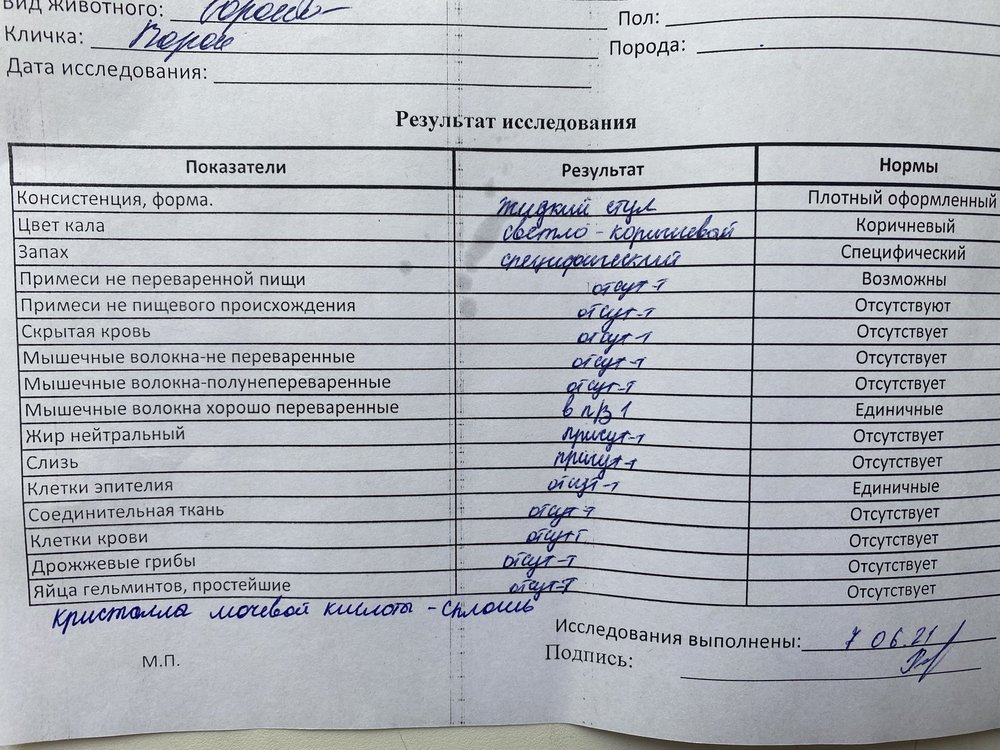 Вид животного:
Кличка: Ворон
Пол:
Порода:
Дата исследования:
Результат исследования
Показатели Результат Нормы
Консистенция, форма. жидкий стул Плотный оформленный
Цвет кала светло-коричневой Коричневый
Запах специфический Специфический
Примеси не переваренной пищи отсут-т Возможны
Примеси не пищевого происхождения отсут-т Отсутствуют
Скрытая кровь отсут-т Отсутствует
Мышечные волокна-не переваренные отсут-т Отсутствует
Мышечные волокна-полунепереваренные отсут-т Отсутствует
Мышечные волокна хорошо переваренные в п/з 1 Единичные
Жир нейтральный присут-т Отсутствует
Слизь присут-т Отсутствует
Клетки эпителия отсут-т Единичные
Соединительная ткань отсут-т Отсутствует
Клетки крови отсут-т Отсутствует
Дрожжевые грибы отсут-т Отсутствует
Яйца гельминтов, простейшие отсут-т Отсутствует
Кристалла мочевой кислоты - сплошь
Исследования выполнены: 7 06.21
М.П.
Подпись: